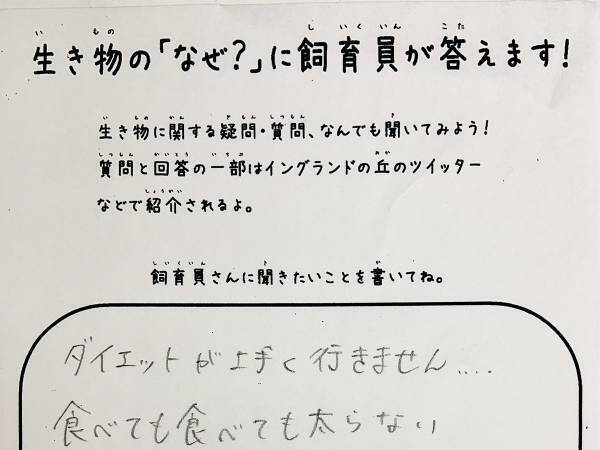 生き物の「なぜ?」に飼育員が答えます!
生き物に関する疑問・質問、なんでも聞いてみよう!
質問と回答の一部はイングランドの丘のツイッター
などで紹介されるよ。
飼育員さんに聞きたいことを書いてね。
ダイエットが上手く行きません....
食べても食べても太らない